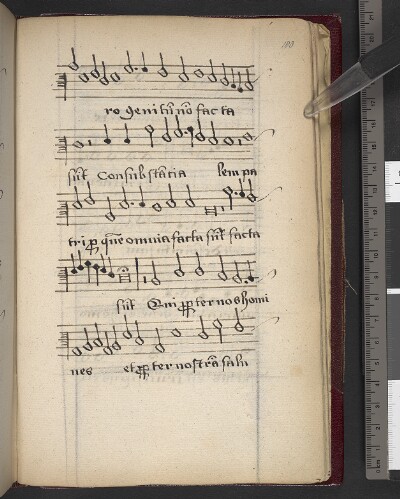 103
ro genitū nō facta
sūt Consubstātia lem pa
tri p quē omnia facta sūt facta
sūt Qui ppter nos homi
nes et ppter nostrā salu